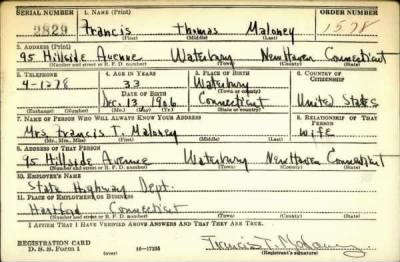 SERIAL NUMBER 1. NAME (Print) ORDER NUMBER
2829 Francis Thomas Maloney 1578
(First) (Middle) (Last)
2. ADDRESS (Print)
95 Hillside Avenue Waterbury New Haven Connecticut
(Number and street or R. F. D. number) (Town) (County) (State)
3. TELEPHONE 4. AGE IN YEARS 5. PLACE OF BIRTH 6. COUNTRY OF CITIZENSHIP
4-1278 33 Waterbury
DATE OF BIRTH (Town or county)
Dec. 13 1906 Connecticut United States
(Exchange) (Number) (Mo.) (Day) (Yr.) (State or country)
7. NAME OF PERSON WHO WILL ALWAYS KNOW YOUR ADDRESS 8. RELATIONSHIP OF THAT PERSON
Mrs. Francis T. Maloney wife
(Mr., Mrs., Miss) (First) (Middle) (Last)
9. ADDRESS OF THAT PERSON
95 Hillside Avenue Waterbury New Haven Connecticut
(Number and street or R. F. D. number) (Town) (County) (State)
10. EMPLOYER'S NAME
State Highway Dept.
11. PLACE OF EMPLOYMENT OR BUSINESS
Hartford Connecticut
(Town) (County) (State)
I AFFIRM THAT I HAVE VERIFIED ABOVE ANSWERS AND THAT THEY ARE TRUE.
REGISTRATION CARD
D. S. S. Form 1 (over) 16-17105 Francis T. Maloney
(Registrant's signature)